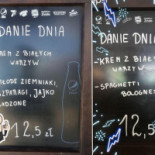 DANIE DNIA
KREM Z BIAŁYCH
WARZYW
MŁODE ZIEMNIAKI,
SZPARAGI, JAJKO
SADZONE
12,5 zł
DANIE DNIA
-KREM Z BIAŁYCH
WARZYW
-SPAGHETTI
BOLOGNESE
12,5